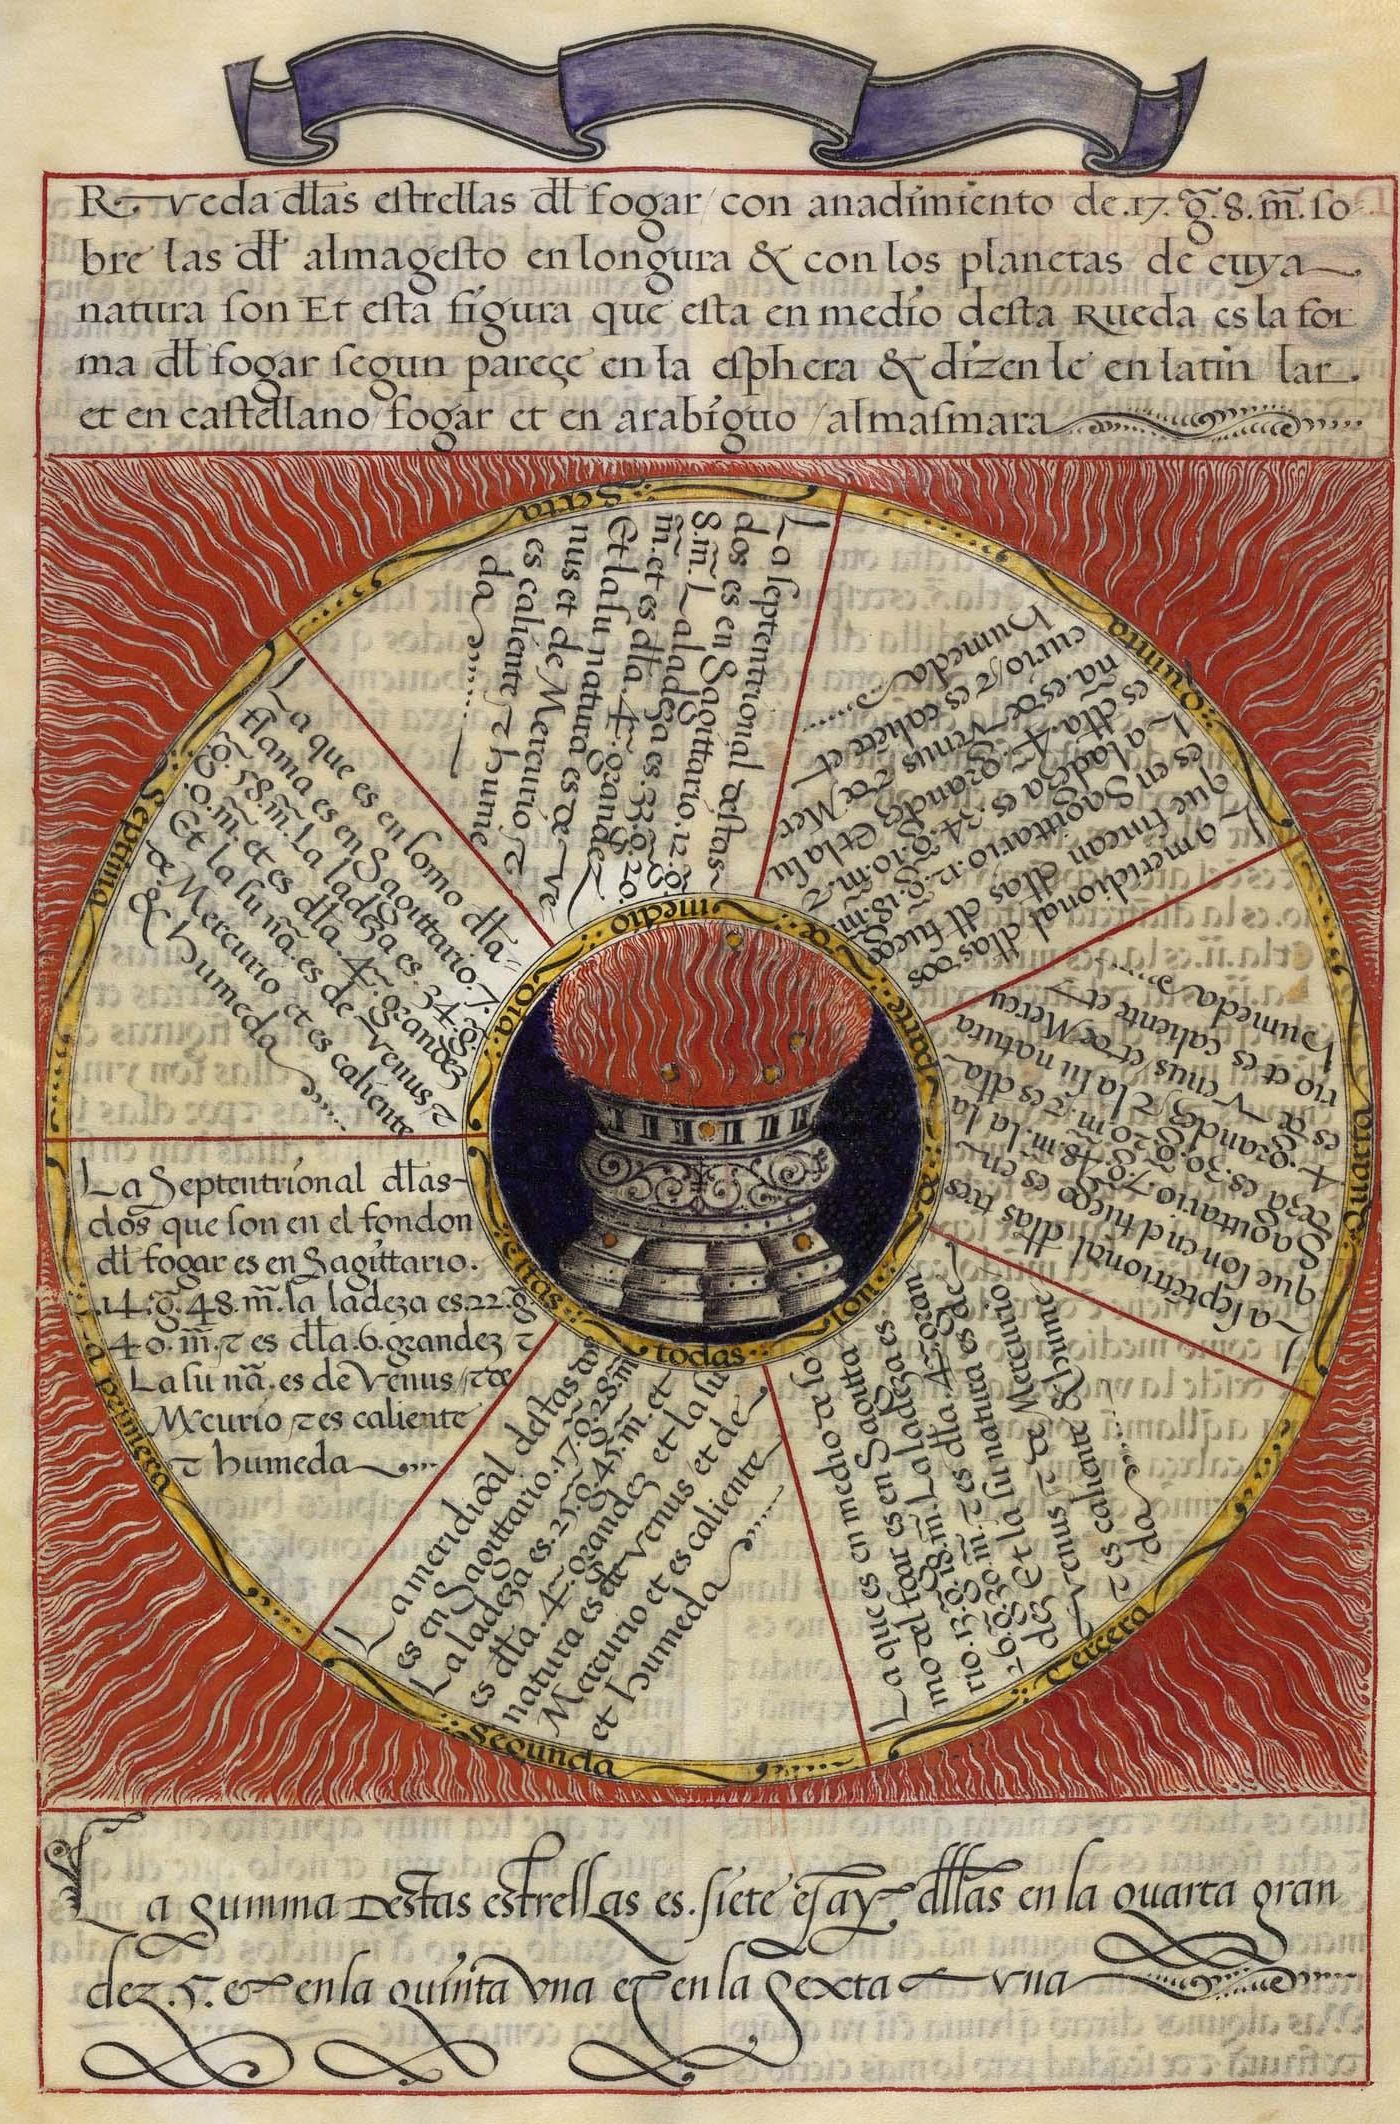 Rueda dłas estrellas dł fogar con anadimiento de .17. g̃. 8. m̃. so
bre las dł almagesto en longura & con los planetas de cuya
natura son Et esta figura que esta en medio desta Rueda es la for
ma dł fogar segun pareçe en la esphera & dizen le en latin lar.
et en castellano fogar et en arabiguo almasmara
La Septentrional dłas
dos que son en el fondon
dł fogar es en Sagittario.
.14. g̃. 48. m̃. la ladeza es .22. g̃
40. m̃. τ es dła .6. grandez τ
La su nã. es de Venus τ de
Mercurio τ es caliente
τ humeda
a primera
La meridional destas dos
es en Sagittario .17. g̃. 28. m̃
La ladeza es .25. g̃. 45. m̃. et
es dła .4. grandez et la su
natura es de Venus et de
Mercurio et es caliente
et humeda
Segunda
La que es en medio de so
mo al fogar es en Sagitta
rio .13. g̃. 18. m̃. La ladeza es
26. g̃. 30. m̃. τ es dła .4. gran
dez Et la su natura es de
Venus τ de Mercurio
τ es caliente & hume
da
Tercera
La septẽtrional dłas tres
que son en el fuego es en
Sagittario .7. g̃. 48. m̃. la la
deza es .30. g̃. 20. m̃. τ es dła
4. grandez τ la su natura
es de Venus et de Mercu
rio et es caliente et
humeda
Quarta
La meridional dłas dos
que fincan dłas dł fuego
es en Sagittario .12. g̃. 18. m̃
La ladeza es .34. g̃. 10. m̃. τ
es dła .4. grandez Et la su
nã. es de Venus τ de Mer
curio τ es caliẽte et
humeda
quinta
La septentrional destas
dos es en Sagittario .12. g̃
8. m̃. La ladeza es .33. g̃. 20.
m̃. et es dła .4. grandez
Et la su natura es de Ve
nus et de Mercurio τ
es caliente τ hume
da
Sexta
La que es en somo dła
flama es en Sagittario .7.
g̃. 58. m̃. La ladeza es .34. g̃.
0. m̃. et es dła .4. grandez
Et la su nã. es de Venus τ
de Mercurio et es caliente
& humeda
Septima
todas son de parte de medio dia
La summa destas estrellas es. siete e ay dłlas en la quarta gran
dez .5. & en la quinta vna et en la Sexta vna